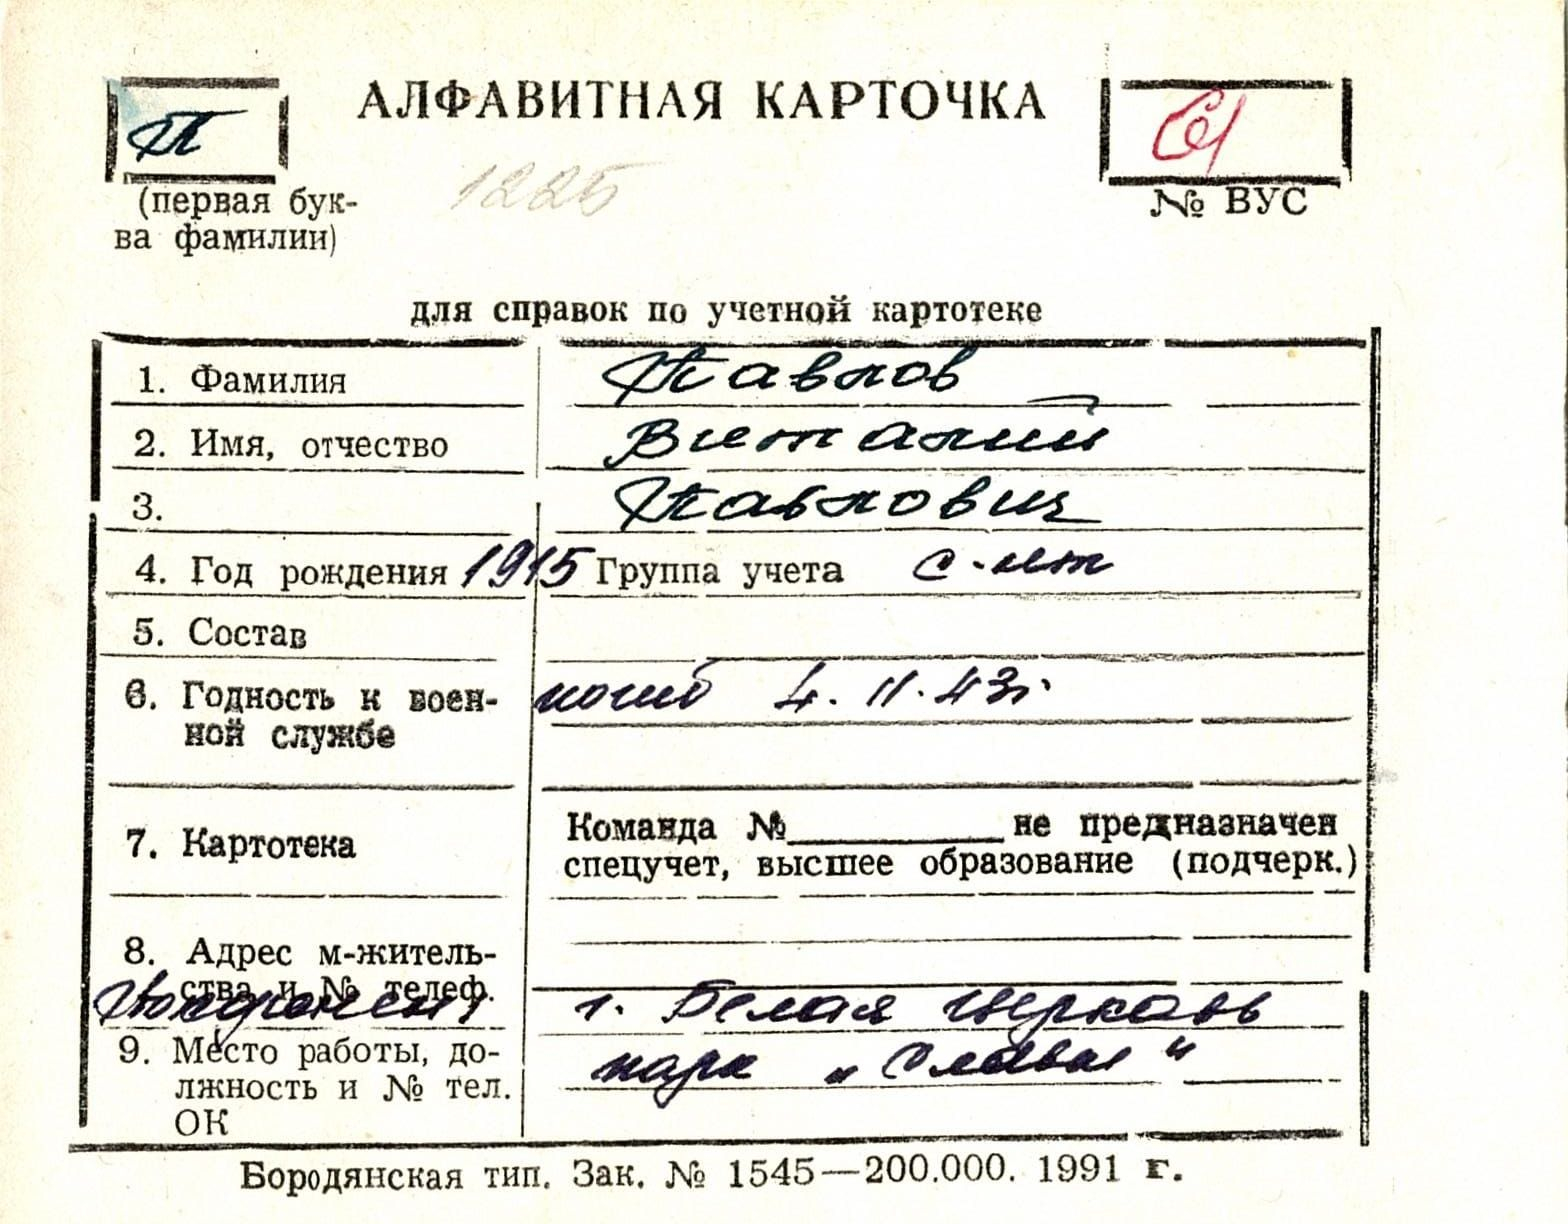 П
АЛФАВИТНАЯ КАРТОЧКА
1225
(первая бук-
ва фамилии)
№ ВУС
для справок по учетной картотеке
1. Фамилия Павлов
2. Имя, отчество Виталий
3. Павлович
4. Год рождения 1915 Группа учета с-нт
5. Состав
6. Годность к воен- погиб 4.11.43г.
ной службе
7. Картотека
Команда №__________не предназначен
спецучет, высшее образование (подчерк.)
8. Адрес м-житель-
ства и № телеф.
Похоронен г. Белая Церковь
9. Место работы, до- парк „Славы"
лжность и № тел.
ОК
Бородянская тип. Зак. № 1545—200.000. 1991 г.